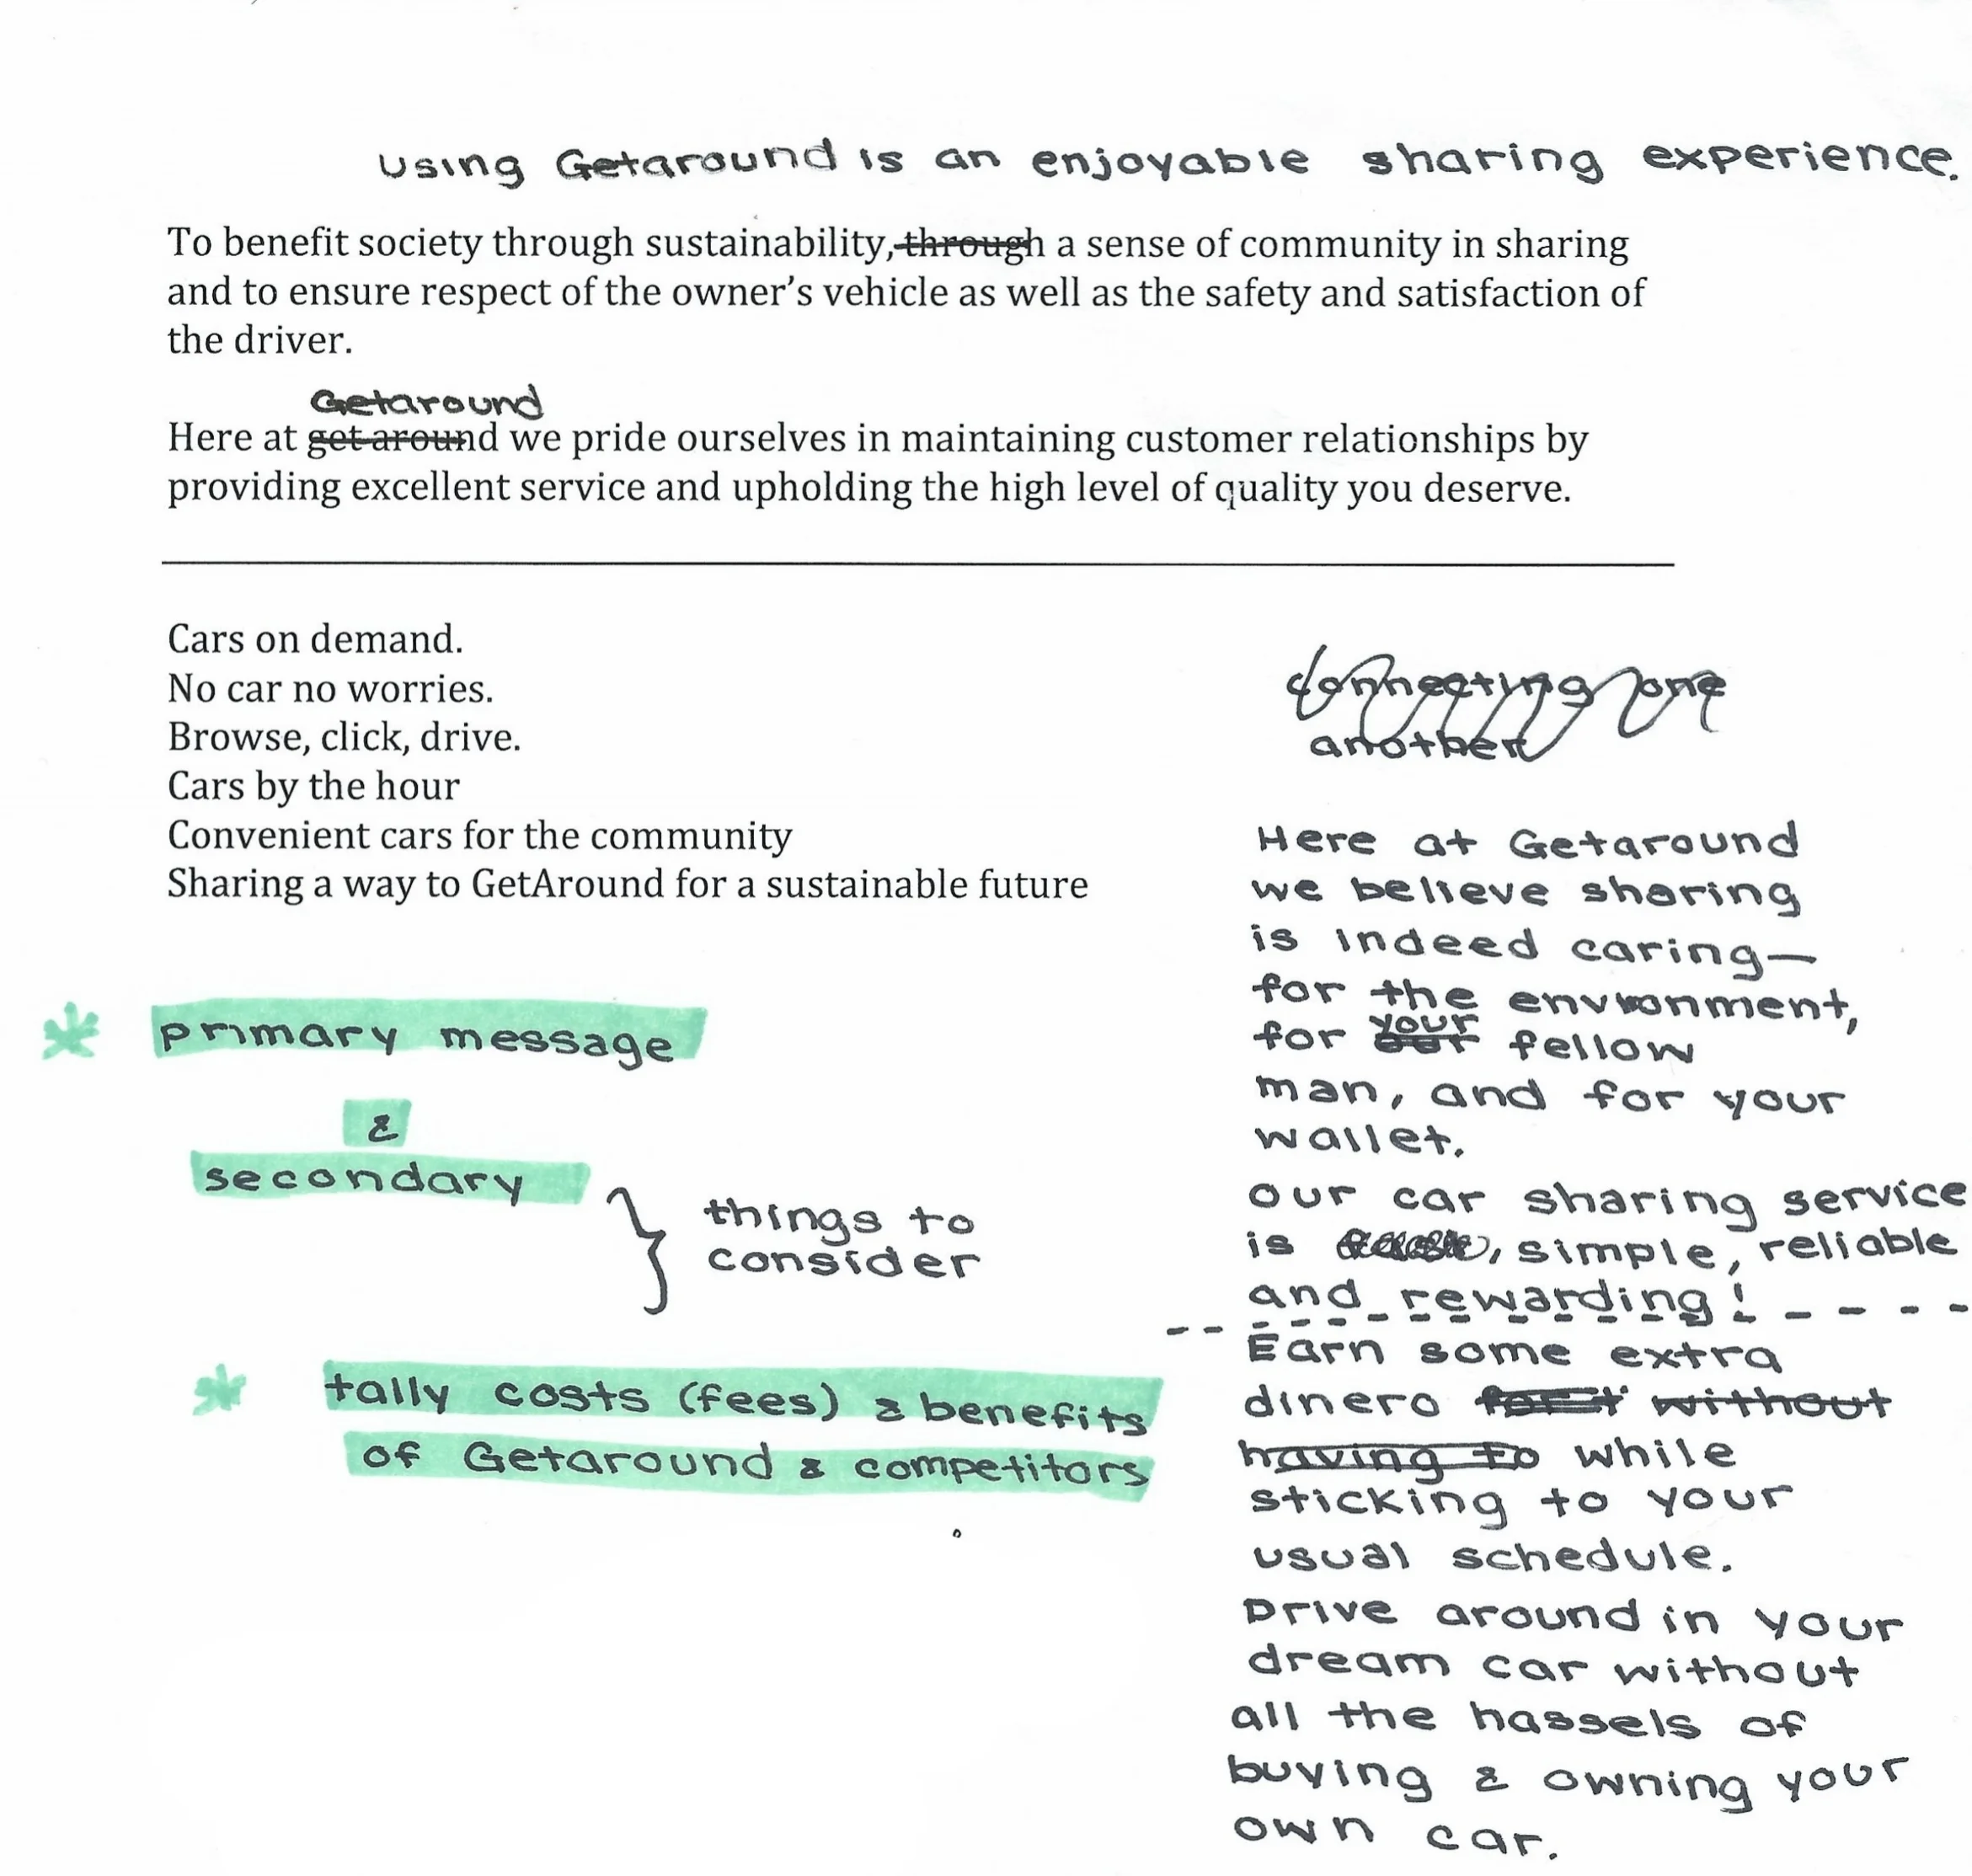 Using Getaround is an enjoyable sharing experience.
To benefit society through sustainability, through a sense of community in sharing
and to ensure respect of the owner's vehicle as well as the safety and satisfaction of
the driver.
Getaround
Here at get around we pride ourselves in maintaining customer relationships by
providing excellent service and upholding the high level of quality you deserve.
Cars on demand.
No car no worries.
Browse, click, drive.
Cars by the hour
Convenient cars for the community
Sharing a way to GetAround for a sustainable future
* primary message
&
secondary
} things to
consider
* tally costs (fees) & benefits
of Getaround & competitors
connecting one
another
Here at Getaround
we believe sharing
is indeed caring—
for the environment,
your
for our fellow
man, and for your
wallet.
Our car sharing service
is , simple, reliable
and rewarding!
Earn some extra
dinero without
having to while
sticking to your
usual schedule.
Drive around in your
dream car without
all the hassels of
buying & owning your
own car.